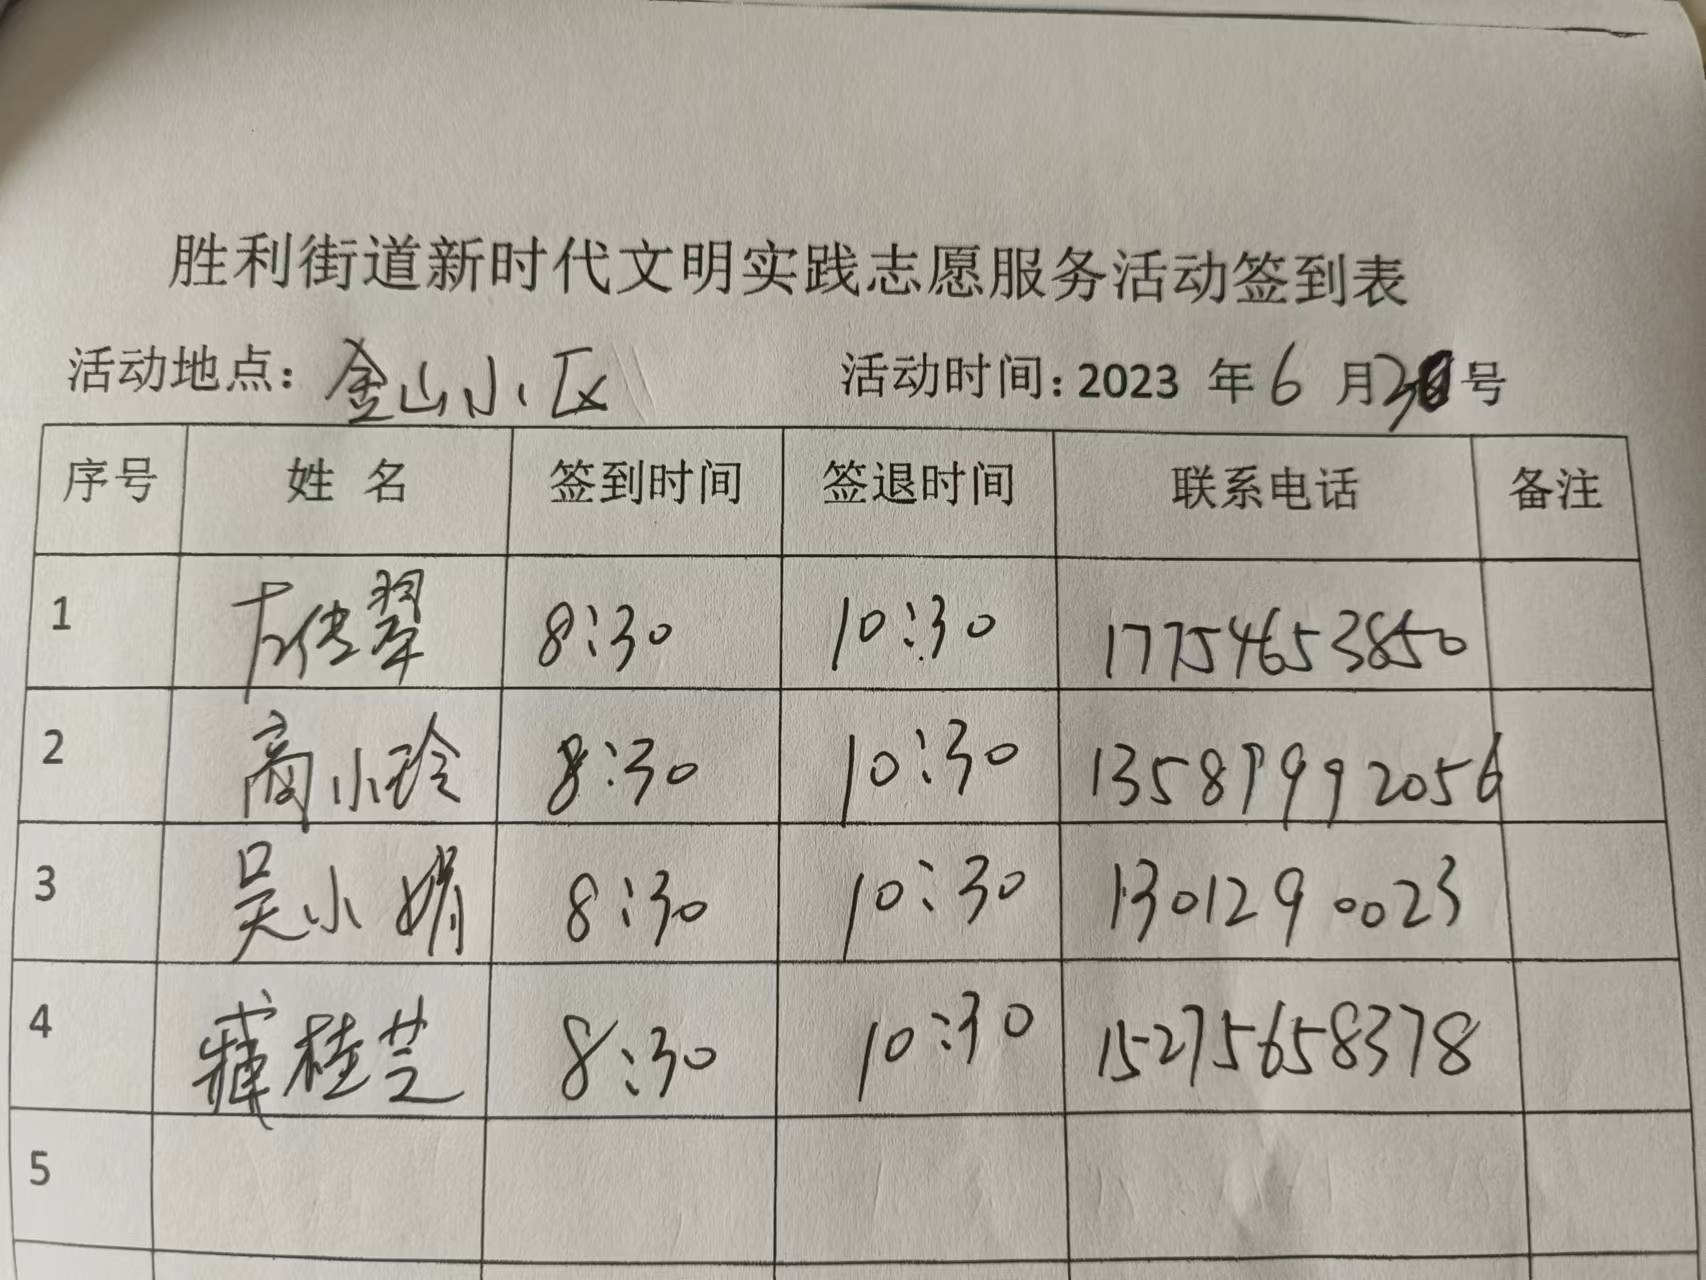 胜利街道新时代文明实践志愿服务活动签到表
活动地点: 金山小区 活动时间: 2023 年 6 月 30 号
序号 姓 名 签到时间 签退时间 联系电话 备注
1 左传翠 8:30 10:30 17754653850
2 商小玲 8:30 10:30 13589992056
3 吴小娟 8:30 10:30 13012900023
4 桂芝 8:30 10:30 15275658378
5